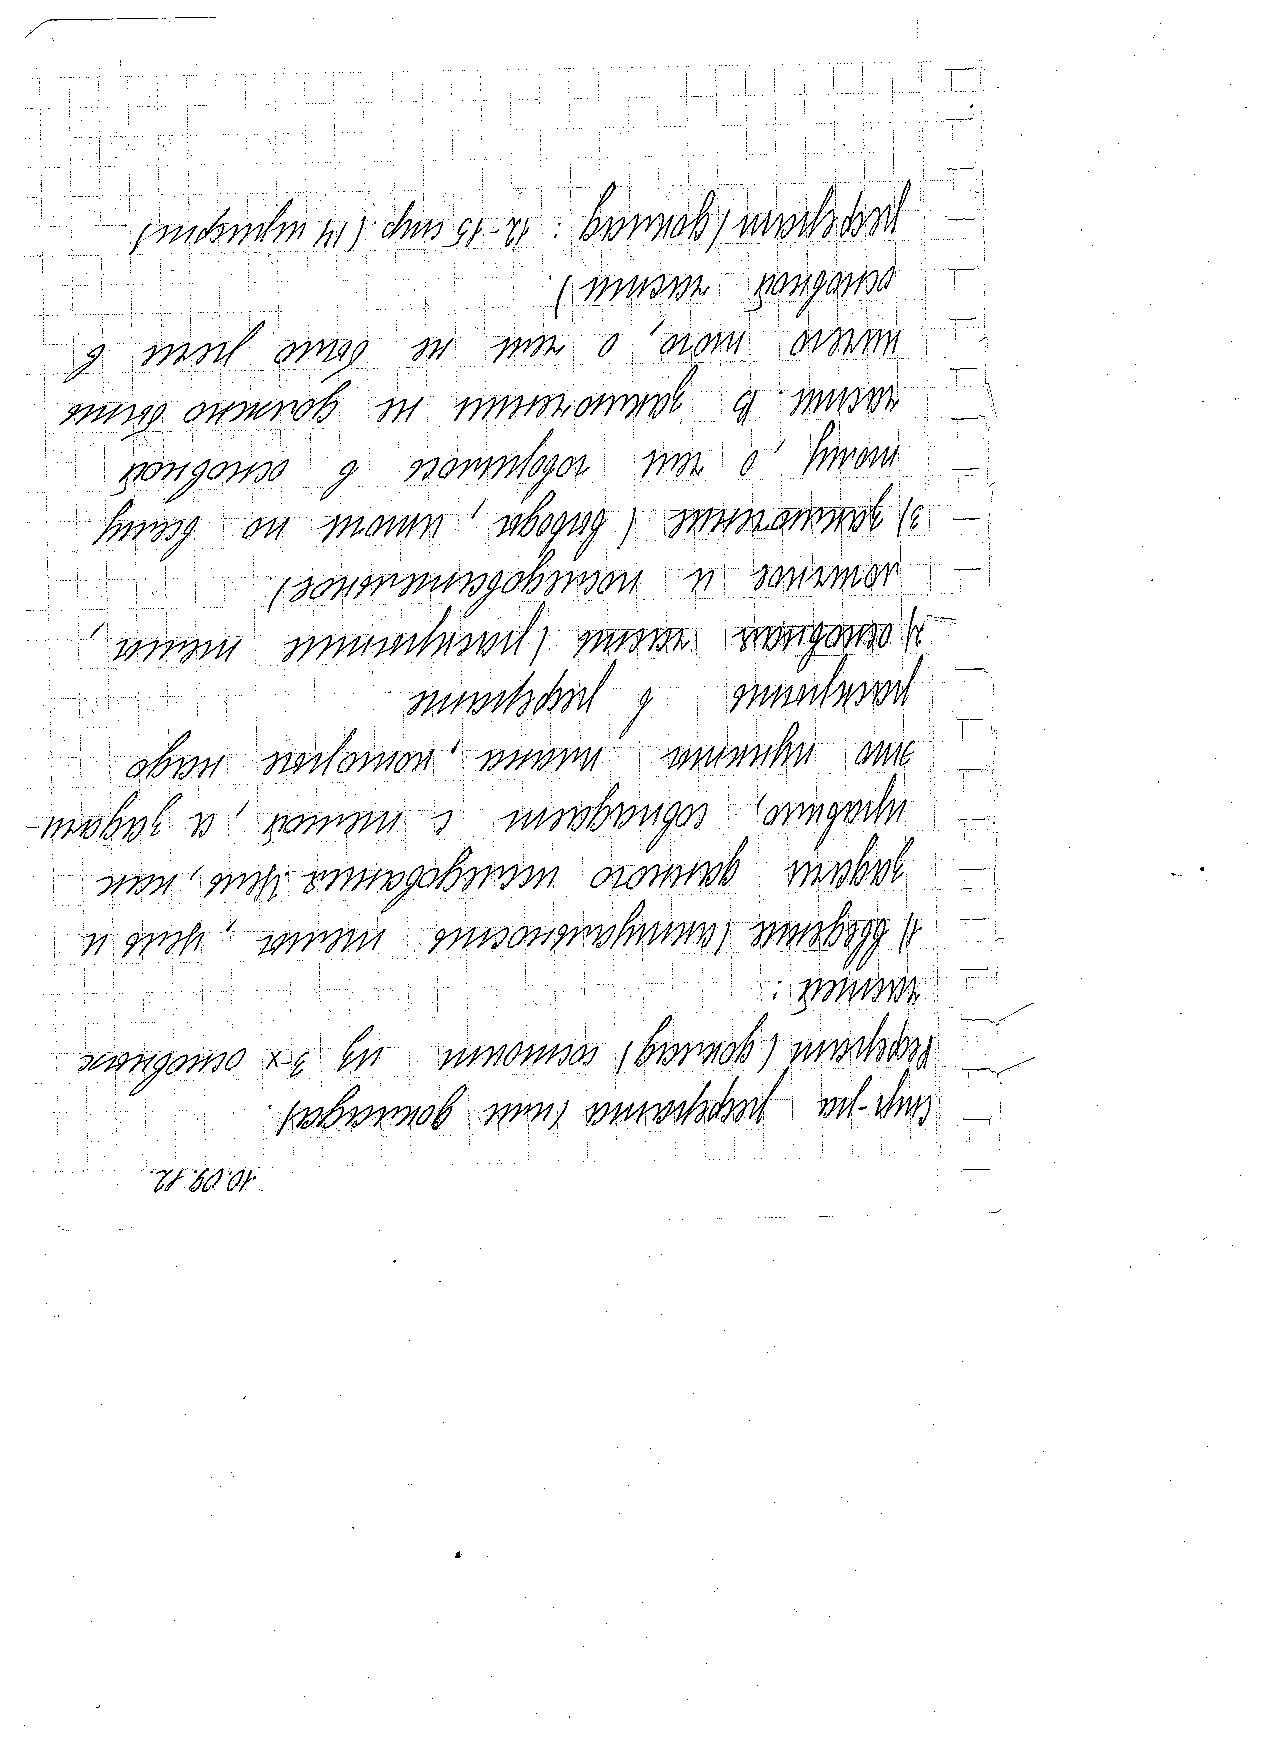 10.09.12.
Стр-ра реферата (или доклада).
Реферат (доклад) состоит из 3-х основных
частей:
1) введение (актуальность темы, цель и
задачи данного исследования. Цель, как
правило, совпадает с темой, а задачи -
это пункты плана, которые надо
раскрыть в реферате
2) основная часть (раскрытие темы,
логичное и последовательное)
3) заключение (вывода, итоги по всему
тому, о чем говорилось в основной
части. В заключении не должно быть
ничего того, о чем не было речи в
основной части).
реферат (доклад) : 12-15 стр (14 шрифт)